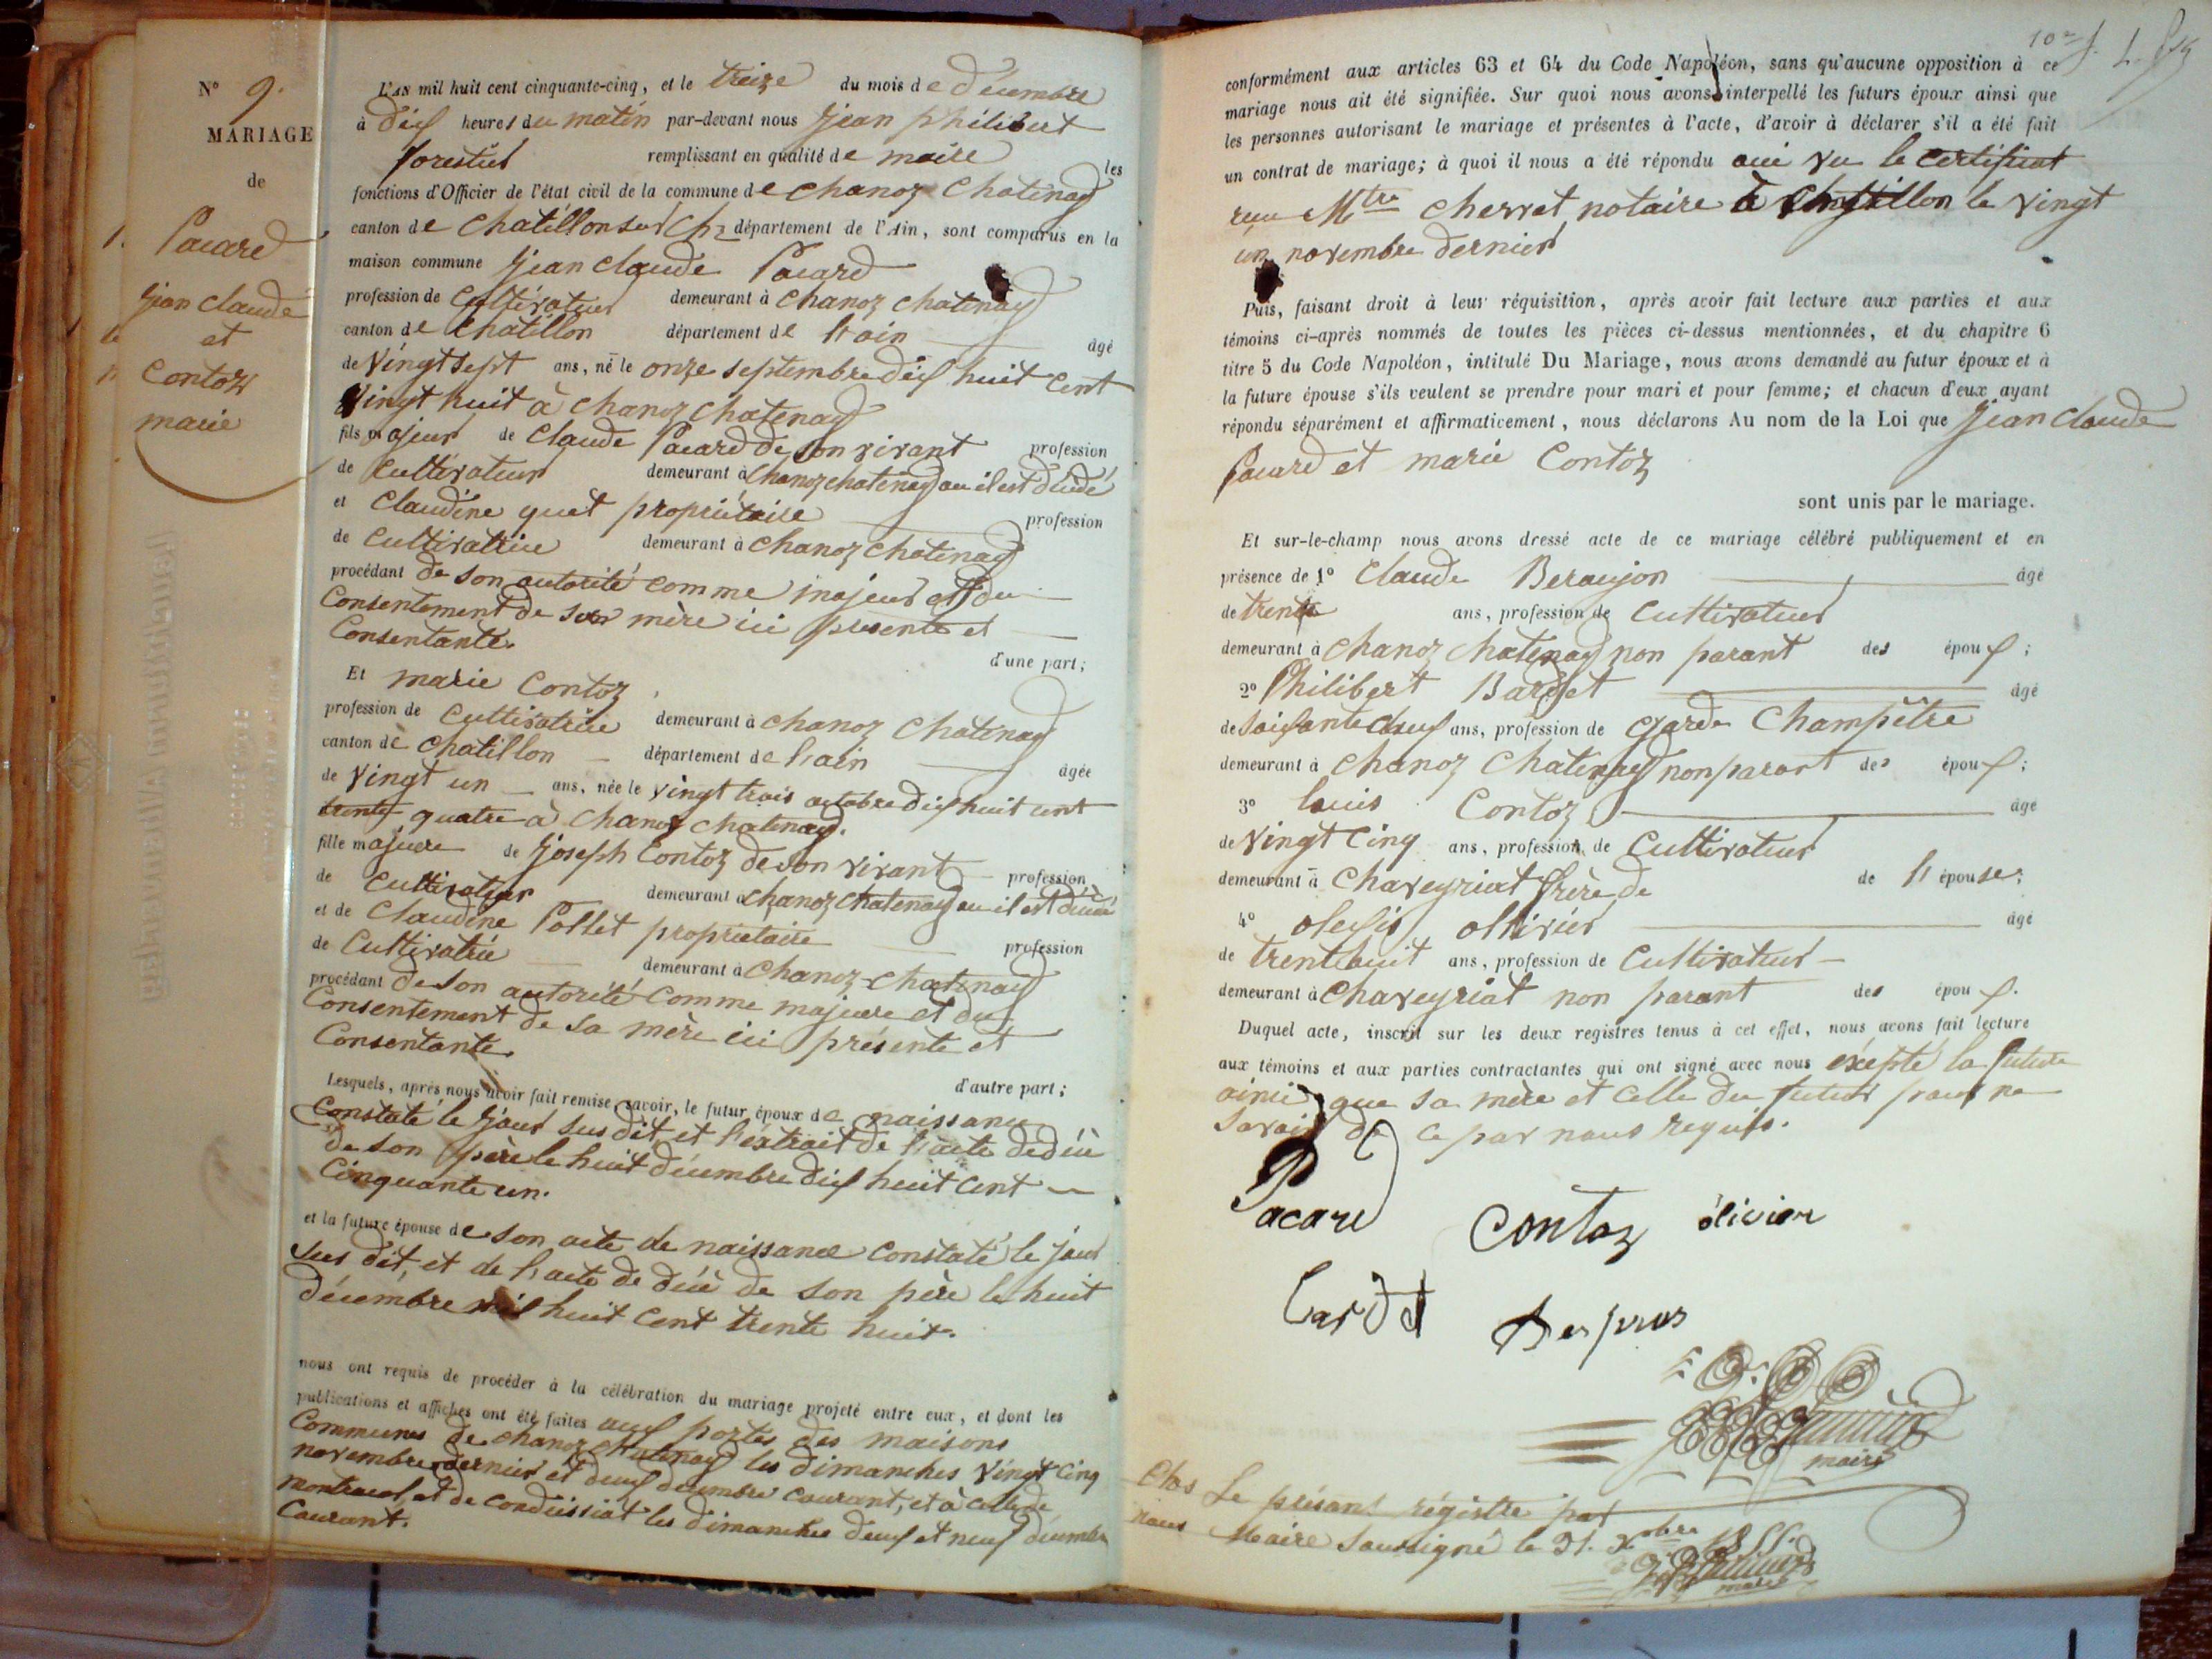 N° 9.
MARIAGE
de
Pacard
jean claude
et
Contoz
marie
L'AN mil huit cent cinquante-cinq, et le treize du mois de décembre
à dix heures du matin par-devant nous jean philibert
forestier remplissant en qualité de maire les
fonctions d'Officier de l'état civil de la commune de chanoz chatenay
canton de chatillon sur ch département de l'Ain, sont comparus en la
maison commune jean claude Pacard
profession de cultivateur demeurant à chanoz chatenay
canton de chatillon département de l'ain âgé
de vingt sept ans, né le onze septembre dix huit cent
vingt huit à chanoz chatenay
fils majeur de claude Pacard de son vivant profession
de cultivateur demeurant à chanoz chatenay ou il est décédé
et claudine quet propriétaire profession
de cultivatrice demeurant à chanoz chatenay
procédant de son autorité comme majeur et du
consentement de sa mère ici présente et
consentante.
d'une part;
Et marie contoz
profession de cultivatrice demeurant à chanoz chatenay
canton de chatillon département de l'ain âgée
de vingt un ans, née le vingt trois octobre dix huit cent
trente quatre à chanoz chatenay.
fille majeure de joseph contoz de son vivant profession
de cultivateur demeurant à chanoz chatenay ou il est décédé
et de claudine Pollet propriétaire profession
de cultivatrice demeurant à chanoz-chatenay
procédant de son autorité comme majeure et du
consentement de sa mère ici présente et
consentante.
d'autre part;
Lesquels, après nous avoir fait remise, savoir, le futur époux de naissance
constaté le jour sus dit et l'extrait de l'acte de décè
de son père le huit décembre dix huit cent
cinquante un.
et la future épouse de son acte de naissance constaté le jour
sus dit, et de l'acte de décè de son père le huit
décembre mil huit cent trente huit.
nous ont requis de procéder à la célébration du mariage projeté entre eux, et dont les
publications et affiches ont été faites aux portes des maisons
communes de chanoz chatenay les dimanches vingt cinq
novembre dernier et deux décembre courant, et à celle de
montracol, et de condeissiat les dimanches deux et neuf décembre
courant.
conformément aux articles 63 et 64 du Code Napoléon, sans qu'aucune opposition à ce
mariage nous ait été signifiée. Sur quoi nous avons interpellé les futurs époux ainsi que
les personnes autorisant le mariage et présentes à l'acte, d'avoir à déclarer s'il a été fait
un contrat de mariage; à quoi il nous a été répondu oui vu le certificat
reçu Mtre cherrat notaire à chatillon le vingt
un novembre dernier
Puis, faisant droit à leur réquisition, après avoir fait lecture aux parties et aux
témoins ci-après nommés de toutes les pièces ci-dessus mentionnées, et du chapitre 6
titre 5 du Code Napoléon, intitulé Du Mariage, nous avons demandé au futur époux et à
la future épouse s'ils veulent se prendre pour mari et pour femme; et chacun d'eux ayant
répondu séparément et affirmativement, nous déclarons Au nom de la Loi que jean claude
Pacard et marie Contoz
sont unis par le mariage.
Et sur-le-champ nous avons dressé acte de ce mariage célébré publiquement et en
présence de 1° claude Beraujon âgé
de trente ans, profession de cultivateur
demeurant à chanoz chatenay non parant des époux;
2° Philibert Bardet âgé
de soixante deux ans, profession de garde champêtre
demeurant à chanoz chatenay non parant des époux;
3° louis Contoz âgé
de vingt cinq ans, profession de cultivateur
demeurant à chaveyriat frère de de l'épouse;
4° olexis ollivier âgé
de trente huit ans, profession de cultivateur
demeurant à chaveyriat non parant des époux.
Duquel acte, inscrit sur les deux registres tenus à cet effet, nous avons fait lecture
aux témoins et aux parties contractantes qui ont signé avec nous éxepté la future
ainsi que sa mère et celle du futur pour ne
savoir de ce par nous requis.
Pacard Contoz olivier
maire
Clos Le présant régistre par
nous Maire soussigné le 31. Xobre 1855.
maire